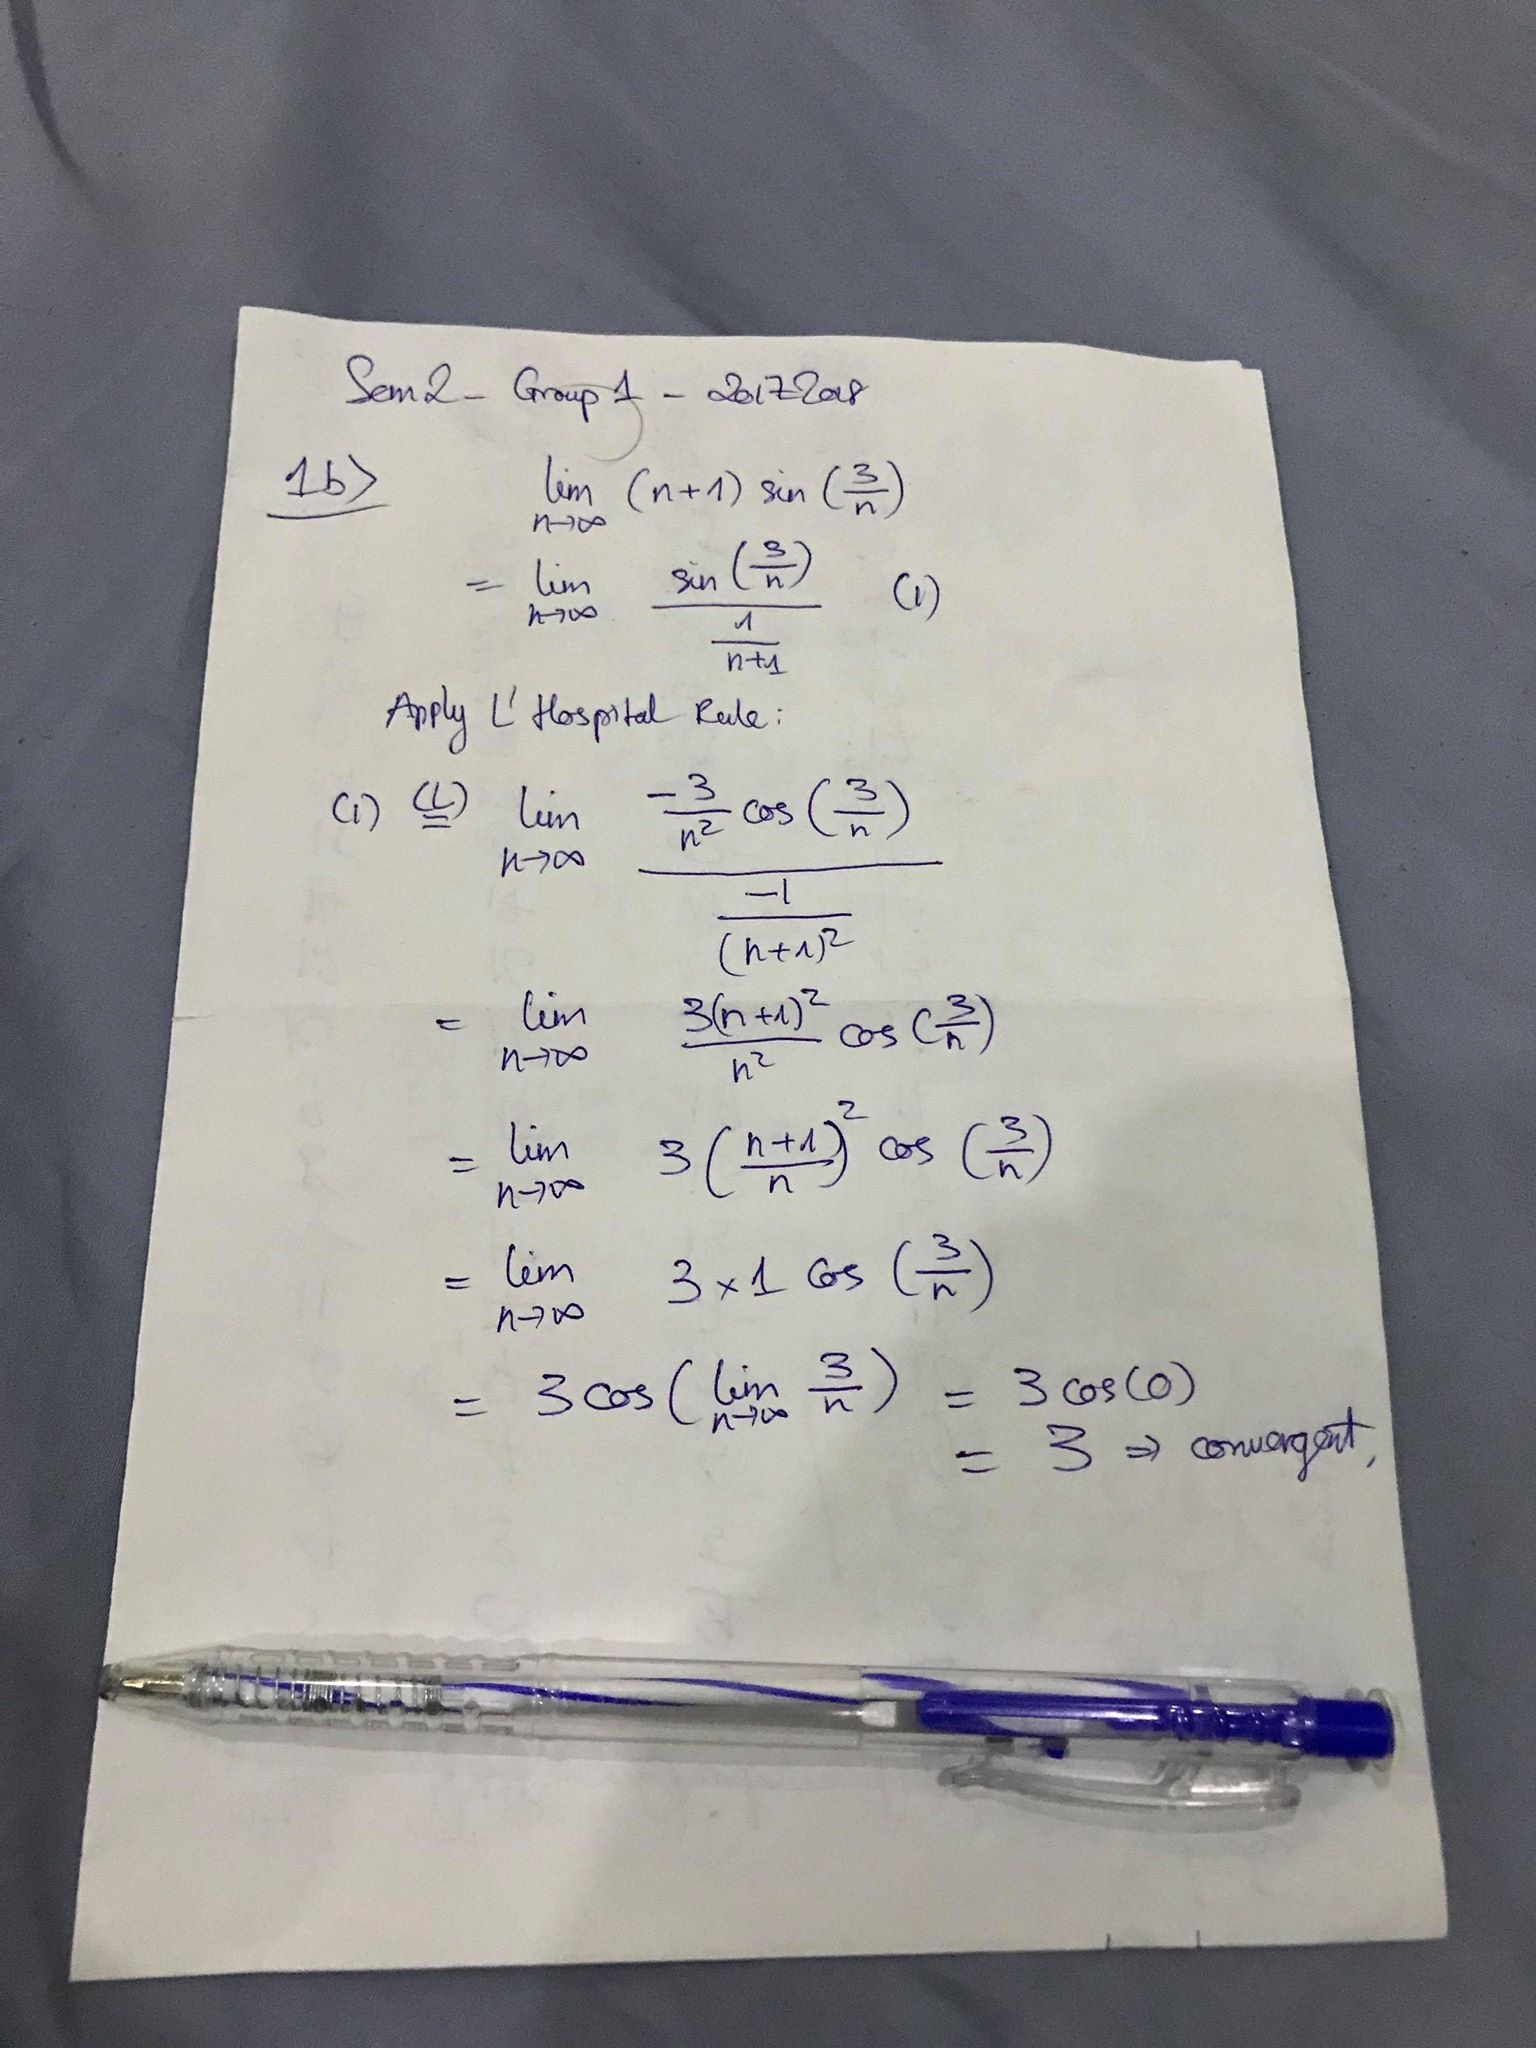 Sem 2 - Group 1 - 2017-2018
1b> lim n→∞ (n+1) sin (3/n)
= lim n→∞ sin (3/n) / (1/(n+1)) (1)
Apply L'Hospital Rule:
(1) (L)= lim n→∞ (-3/n² cos (3/n)) / (-1/(n+1)²)
= lim n→∞ 3(n+1)²/n² cos (3/n)
= lim n→∞ 3 ((n+1)/n)² cos (3/n)
= lim n→∞ 3 × 1 cos (3/n)
= 3 cos (lim n→∞ 3/n) = 3 cos(0)
= 3 ⇒ convergent,